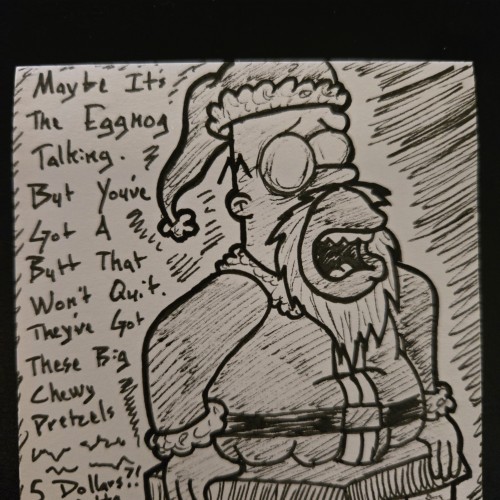 Maybe It's
The Eggnog
Talking.
But You've
Got A
Butt That
Won't Quit.
They've Got
These Big
Chewy
Pretzels
5 Dollars?!